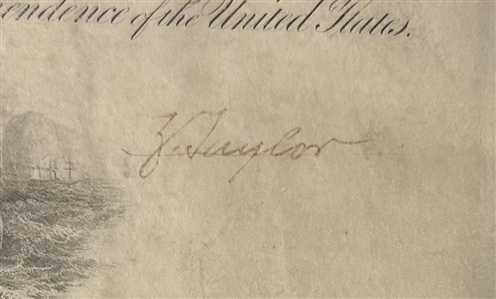 pendence of the United States.
Z. Taylor